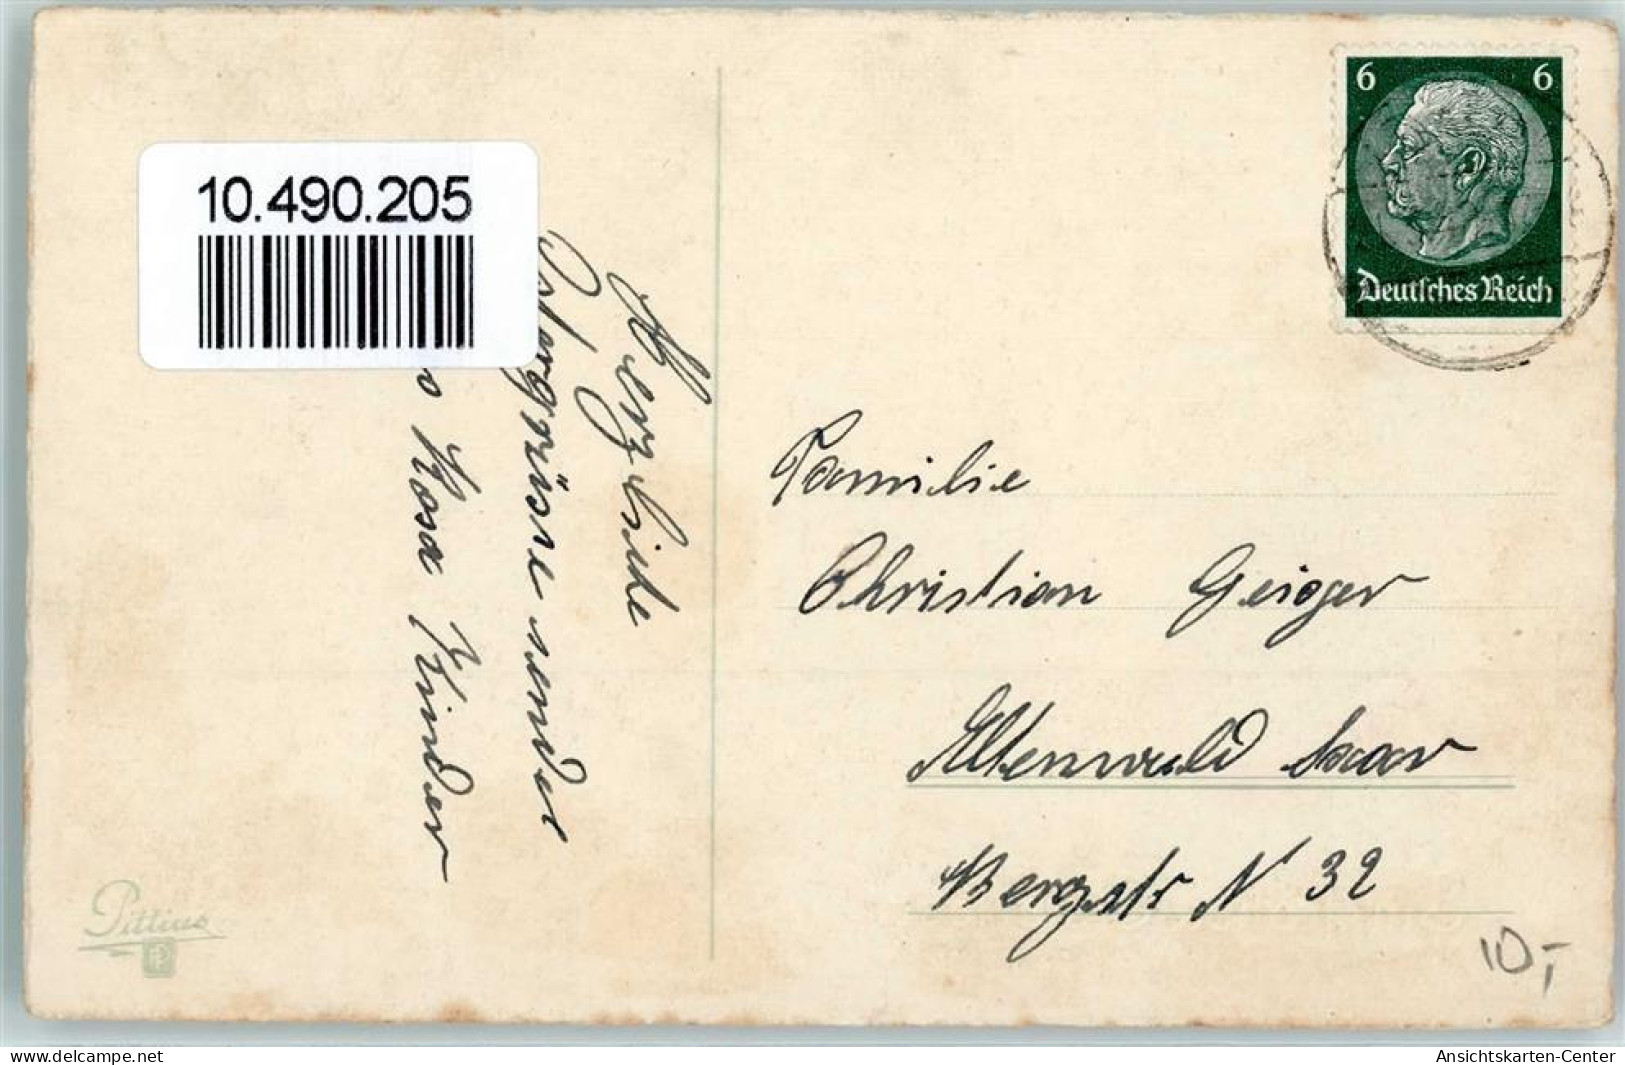 10.490.205
6 6
Deutsches Reich
Herzliche
Ostergrüsse sendet
Rosa Kinder
Familie
Christian Geiger
Altenwald Saar
Bergstr N 32
Pittius
10,-
delcampe.net
Ansichtskarten-Center